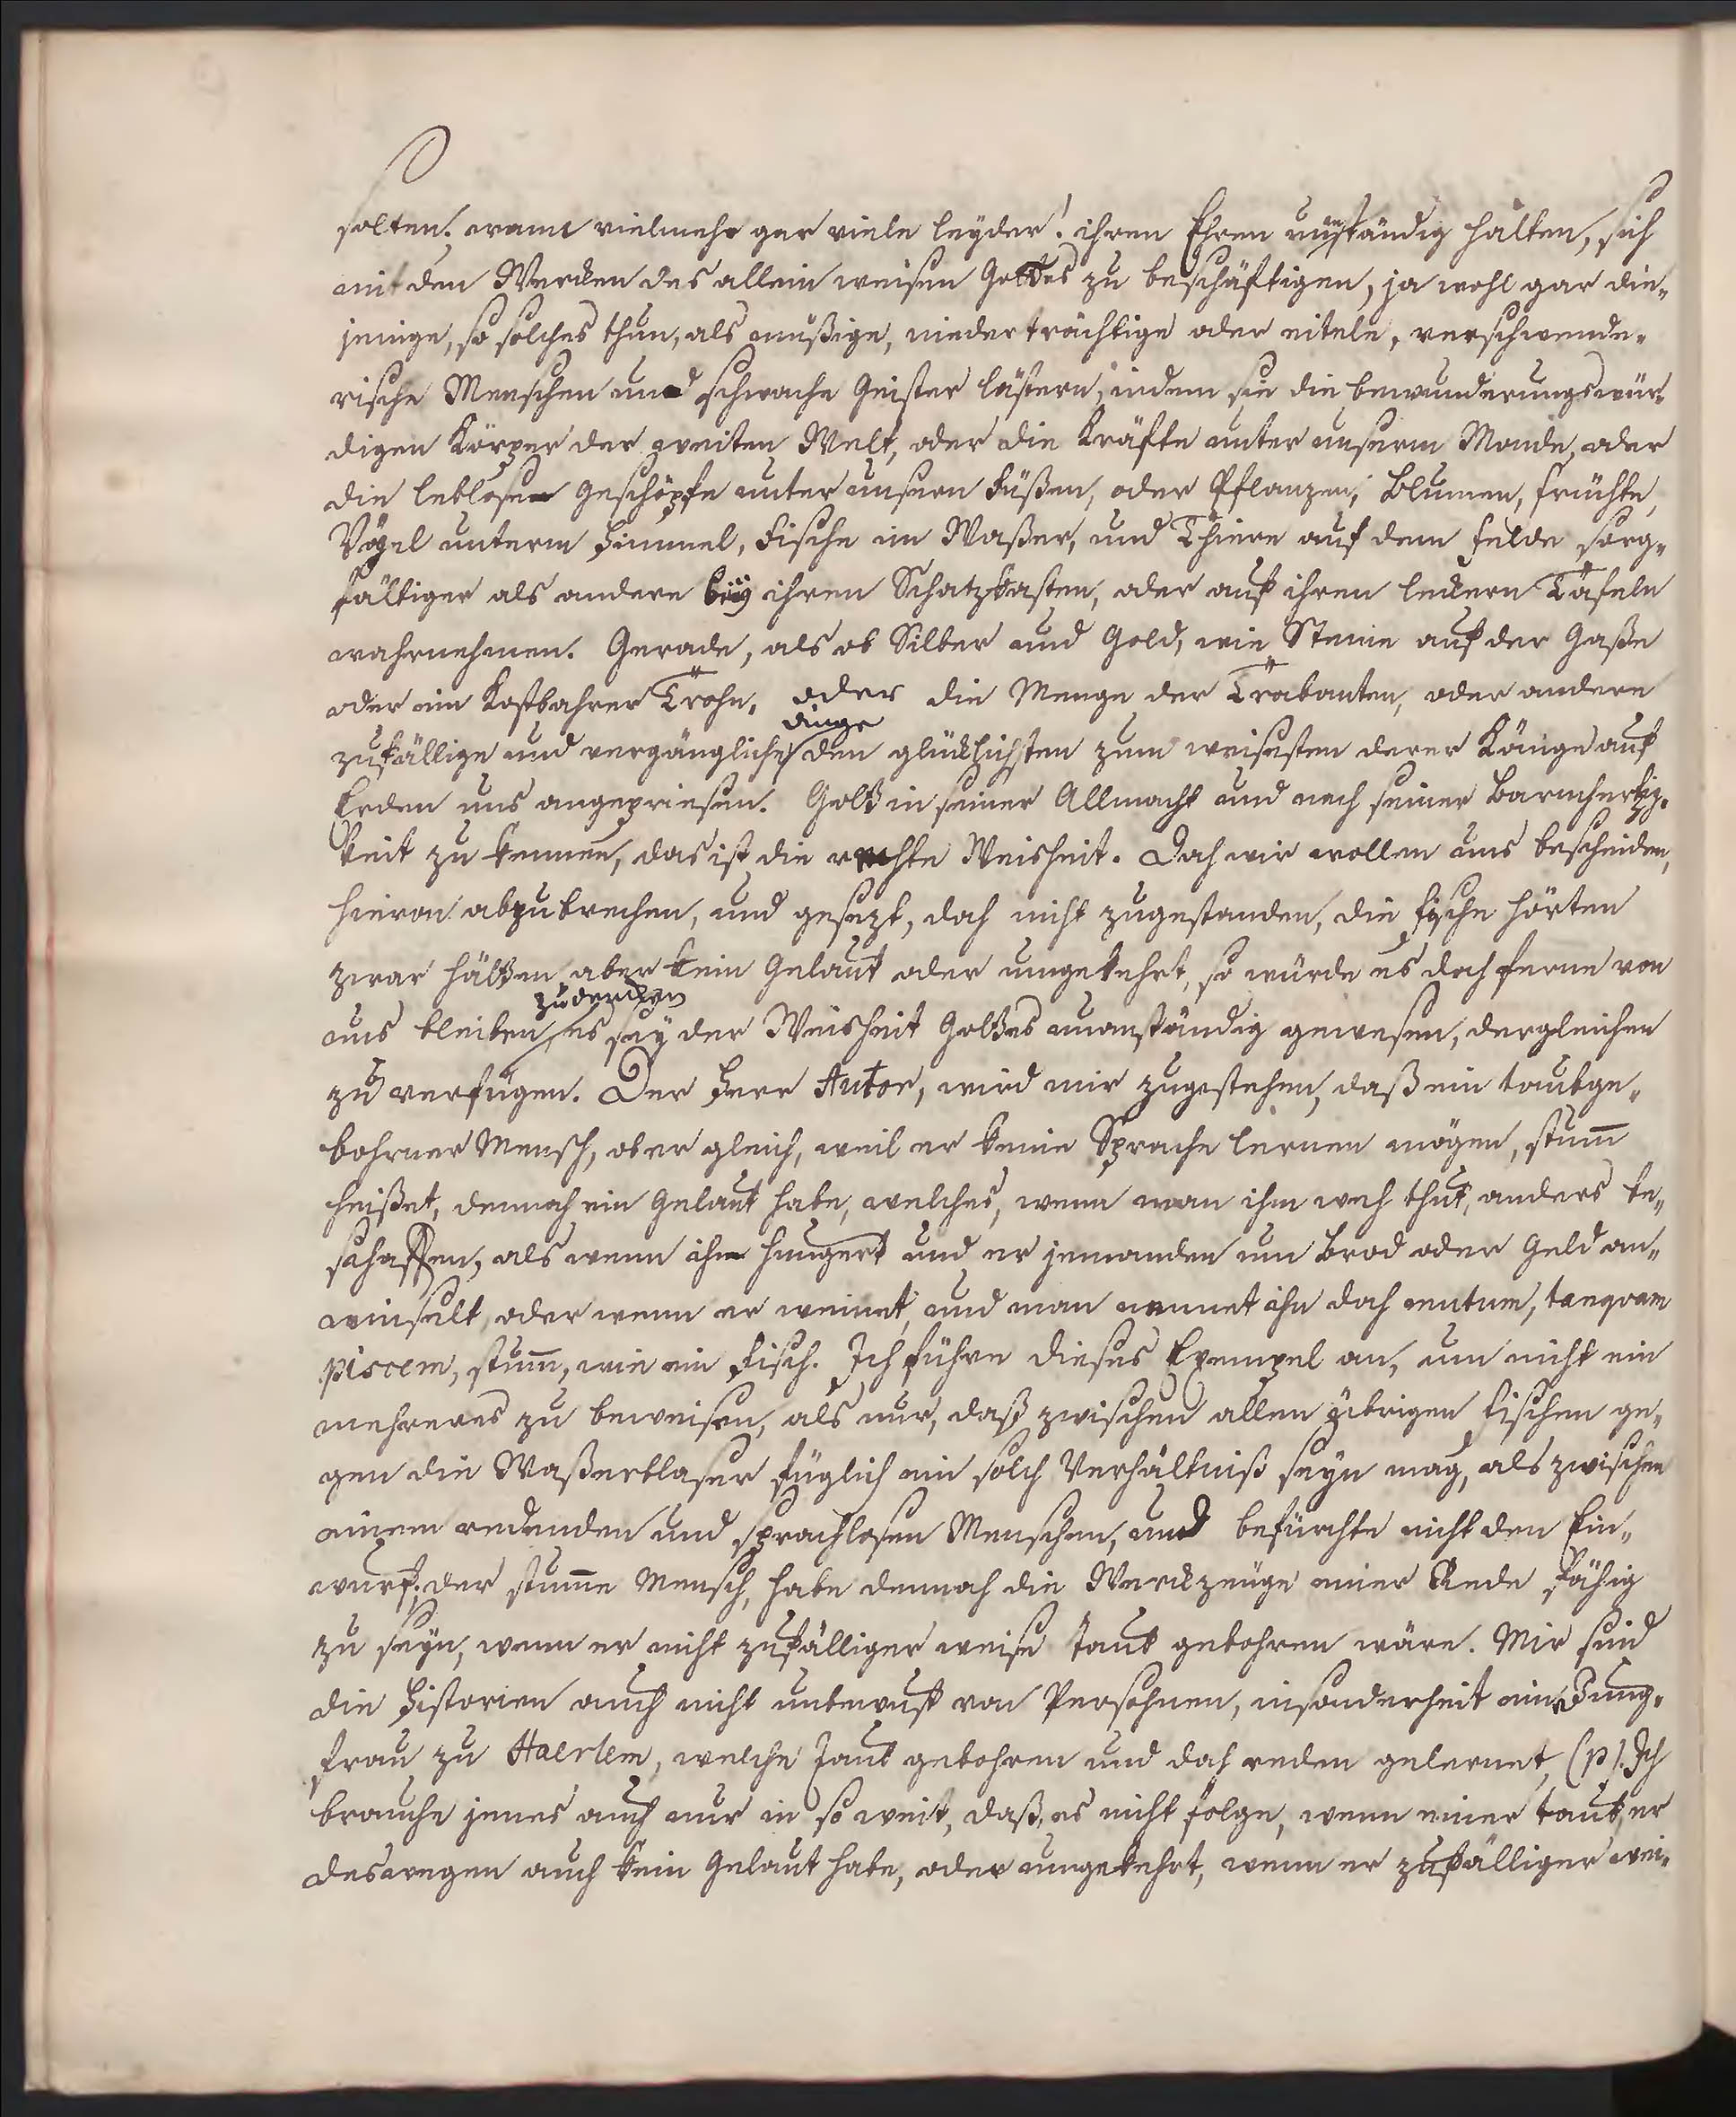 solten. wann vielmehr gar viele leyder! ihren Ehren unanständig halten, sich
mit den Wercken des allein weisen Gottes zu beschäftigen, ja wohl gar die-
jenige, so solches thun, als müßige, niederträchtige oder eitele, verschwende-
rische Menschen und schwache Geister lästern, indem sie die bewunderungswür-
digen Körper der weiten Welt, oder die Kräfte unter unserm Monde, oder
die leblosen Geschöpfe unter unsern Füßen, oder Pflanzen, Blumen, Früchte,
Vögel unterm Himmel, Fische im Waßer, und Thiere auf dem Felde sorg-
fältiger als andere bey ihren Schatzkasten, oder auf ihren leckern Tafeln
wahrnehmen. Gerade, als ob Silber und Gold, wie Steine auf der Gaße
oder ein Kostbahrer Trohn, oder die Menge der Trabanten, oder andere
zufällige und vergängliche dinge den glücklichsten zum weisesten derer Könige auf
Erden uns angepriesen. Gott in seiner Allmacht und nach seiner Barmhertzig-
keit zu kennen, das ist die rechte Weisheit. Doch wir wollen uns bescheiden,
hievon abzubrechen, und gesezt, doch nicht zugestanden, die Fische hörten
zwar hätten aber kein Gelaut oder umgekehrt, so würde es doch ferne von
uns bleiben, zu dencken es sey der Weisheit Gottes unanständig gewesen, dergleichen
zu verfügen. Der Herr Autor, wird mir zugestehen, daß ein taubge-
bohrner Mensch, ob er gleich, weil er keine Sprache lernen mögen, stum̄
heißet, dennoch ein Gelaut habe, welches, wenn man ihm weh thut, anders be-
schaffen, als wenn ihn hungert und er jemanden um Brod oder Geld an-
winselt, oder wenn er weinet, und man nennet ihn doch mutum, tanqvam
piscem, stum̄, wie ein Fisch. Ich führe dieses Exempel an, um nicht ein
mehreres zu beweisen, als nur, daß zwischen allen übrigen Fischen ge-
gen die Waßerblaser füglich ein solch Verhältniß seyn mag, als zwischen
einem redenden und sprachlosen Menschen, und befürchte nicht den Ein-
wurf, der stum̄e Mensch, habe dennoch die Werckzeuge einer Rede fähig
zu seyn, wenn er nicht zufälliger weise taub gebohren wäre. Mir sind
die Historien auch nicht unbewust von Persohnen, insonderheit einer Jung-
frau zu Haerlem, welche taub gebohren und doch reden gelernet, (p). Ich
brauche jenes auch nur in so weit, daß, es nicht folge, wenn einer taub, er
deswegen auch kein Gelaut habe, oder umgekehrt, wenn er zufälliger wei-